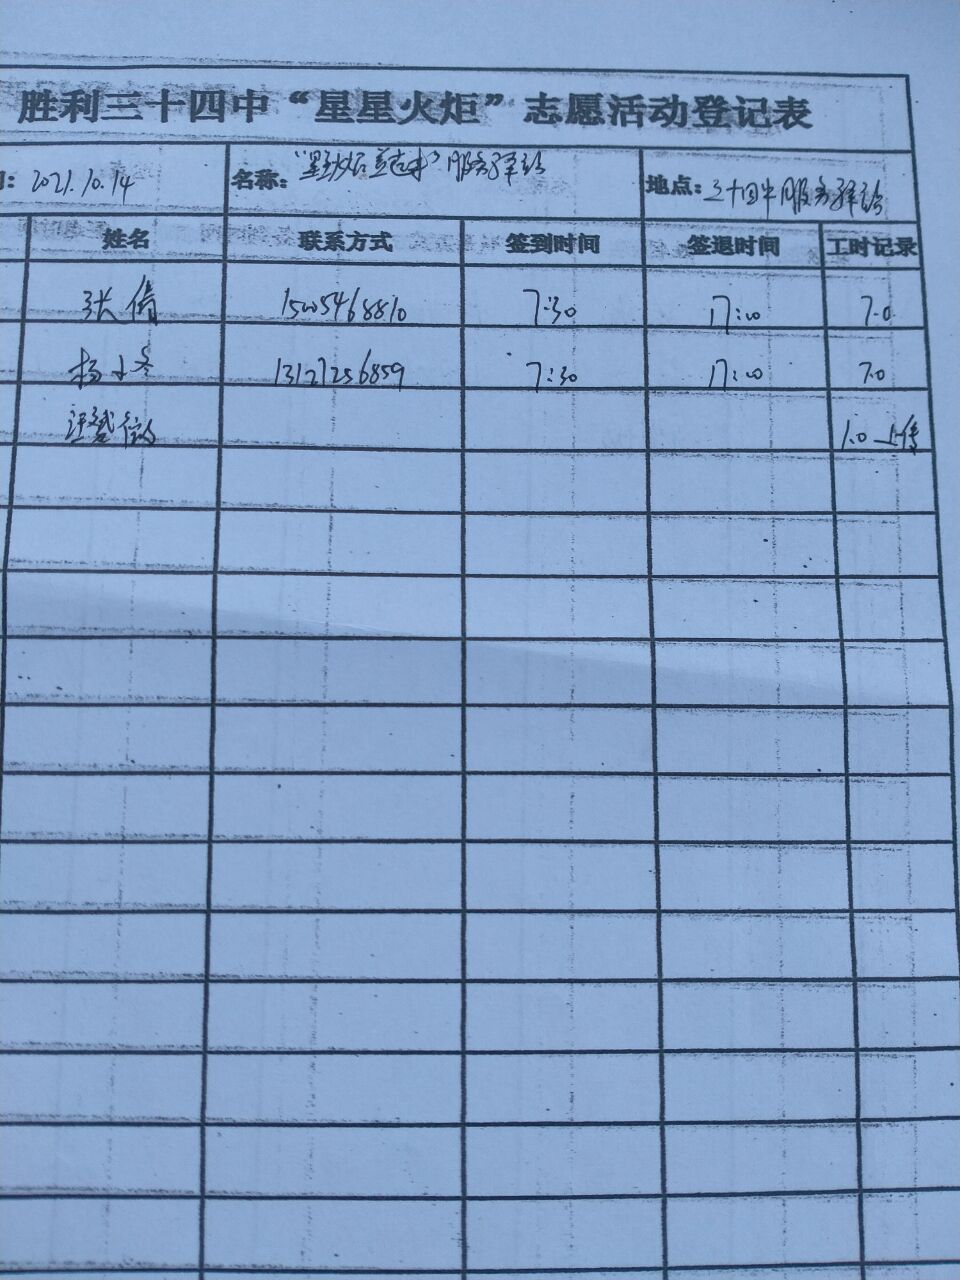 胜利三十四中“星星火炬”志愿活动登记表
间：2021.10.14 名称： 服务驿站 地点：三十四中服务驿站
姓名 联系方式 签到时间 签退时间 工时记录
张倩 15005468810 7:30 17:00 7.0
杨小冬 13127256859 7:30 17:00 7.0
1.0 上传